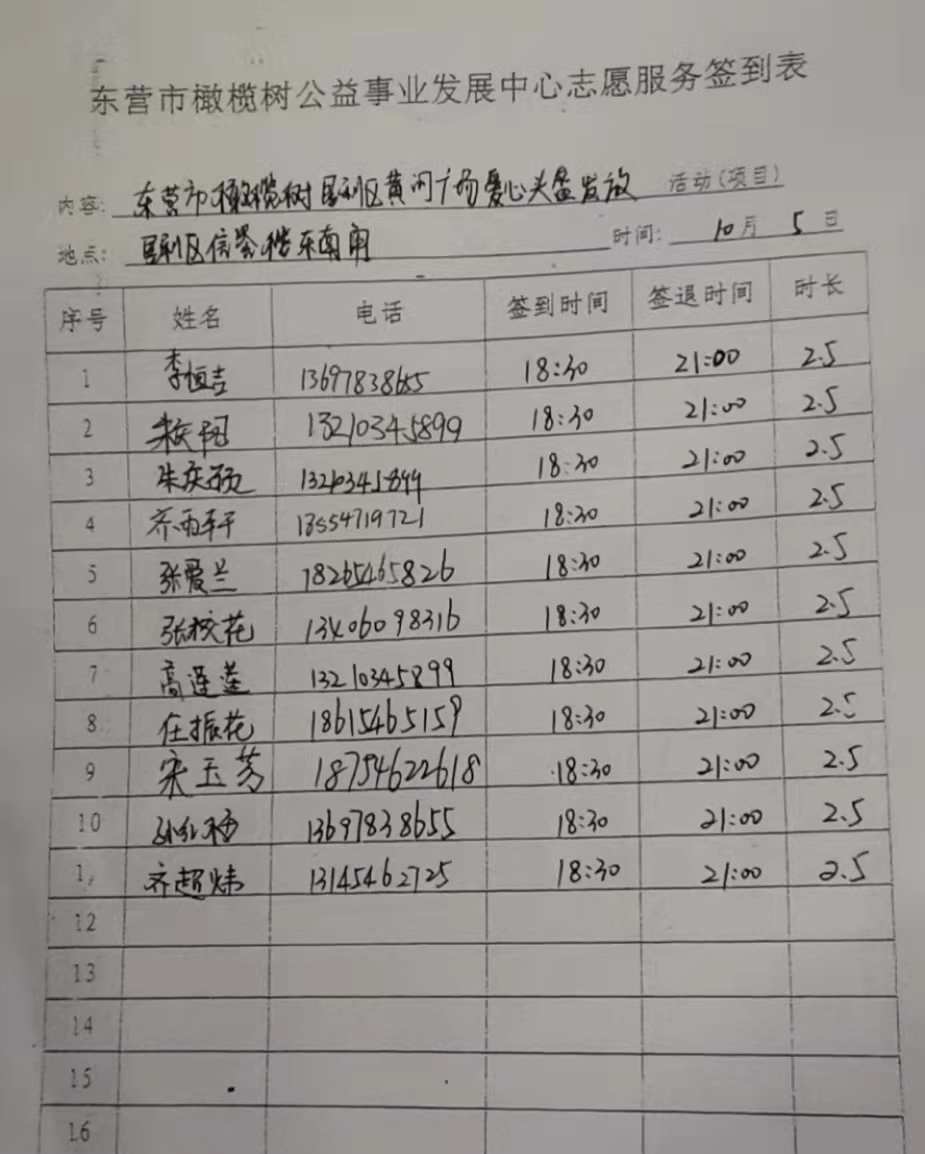 东营市橄榄树公益事业发展中心志愿服务签到表
内容: 东营市橄榄树垦利区黄河广场爱心头盔发放 活动(项目)
地点: 垦利区信誉楼东南角 时间: 10月 5日
序号 姓名 电话 签到时间 签退时间 时长
1 李恒吉 13697838655 18:30 21:00 2.5
2 13210345899 18:30 21:00 2.5
3 18:30 21:00 2.5
4 18:30 21:00 2.5
5 张爱兰 18265465826 18:30 21:00 2.5
6 张校花 13406098316 18:30 21:00 2.5
7 高莲莲 13210345899 18:30 21:00 2.5
8 任振花 18615465159 18:30 21:00 2.5
9 宋玉芳 18754622618 18:30 21:00 2.5
10 13697838655 18:30 21:00 2.5
齐超炜 13145462725 18:30 21:00 2.5
12
13
14
15
16